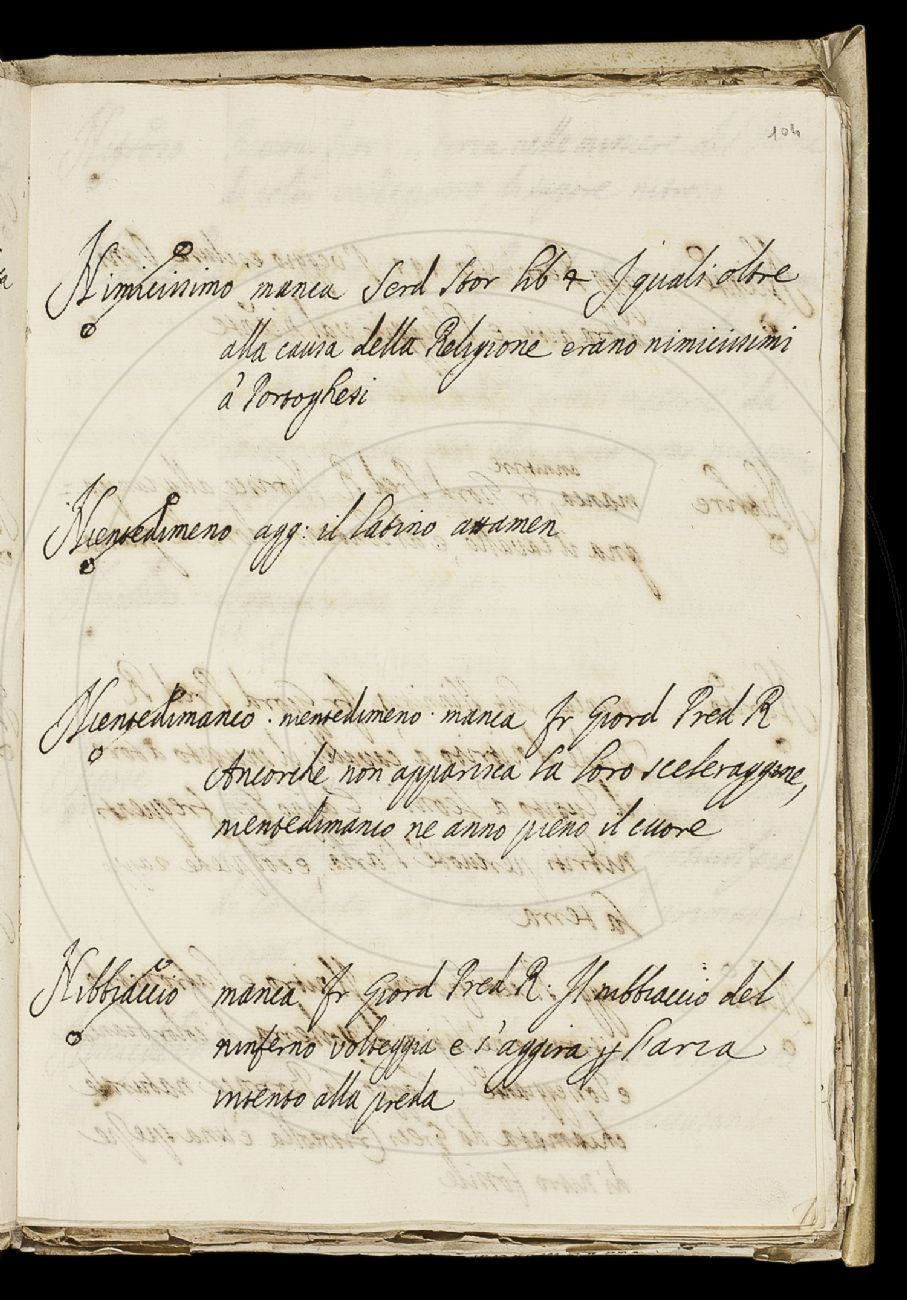 Nimicissimo manca Serd Stor lib 4 I quali oltre
alla causa della Religione erano nimicissimi
à Portoghesi
Nientedimeno agg: il latino attamen
Nientedimanco · nientedimeno · manca fr Giord Pred R
Ancorchè non apparisca la loro sceleraggine,
nientedimanco ne anno pieno il cuore
Nibbiaccio manca fr Giord Pred R· Il nibbiaccio del
ninferno volteggia e s'aggira p l'aria
intento alla preda